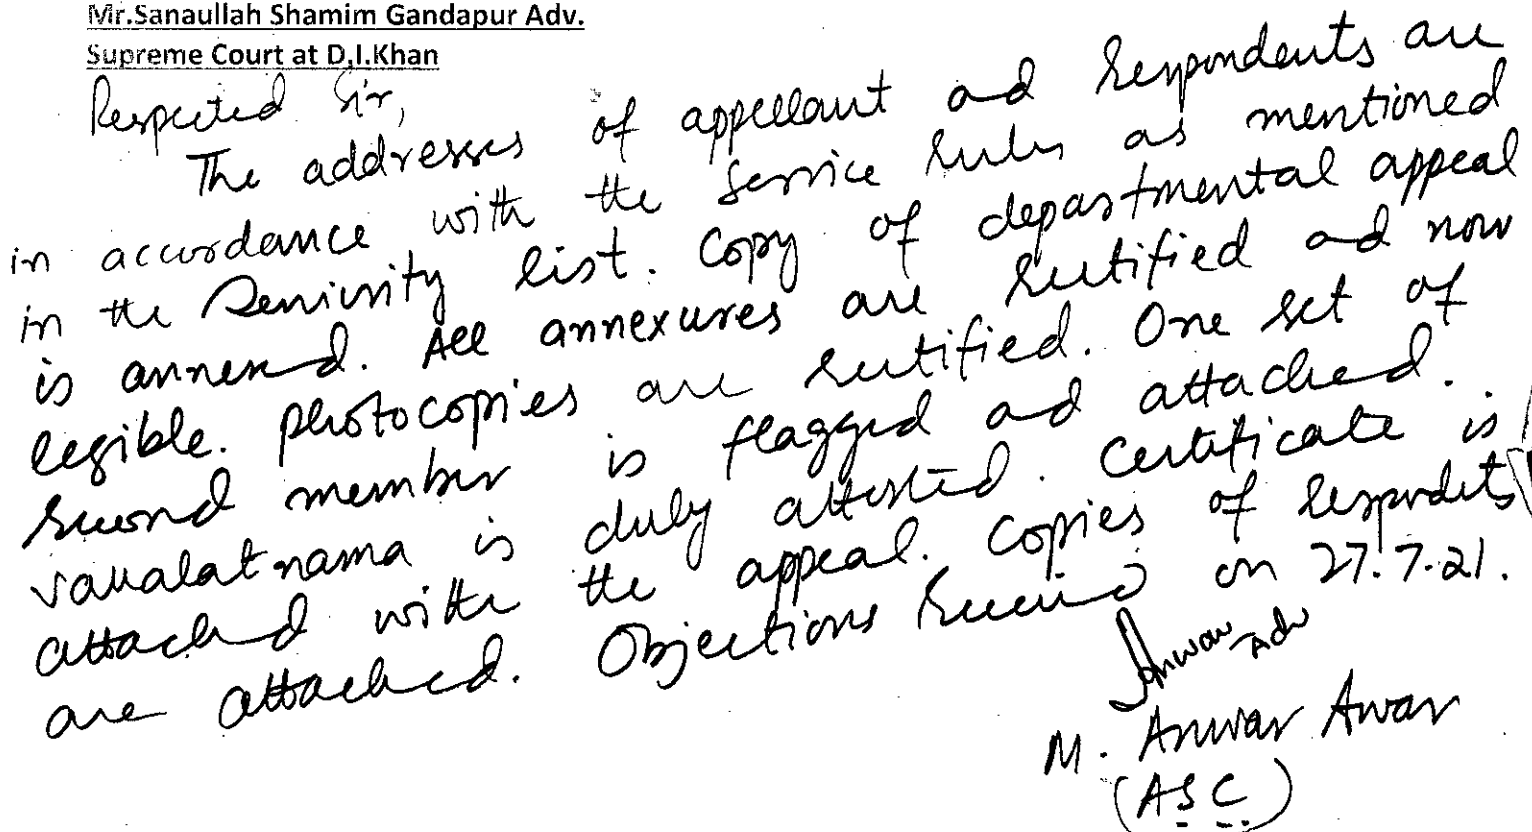 Mr.Sanaullah Shamim Gandapur Adv.
Supreme Court at D.I.Khan
Respected Sir,
The addresses of appellant and Respondents are
in accordance with the service rules as mentioned
in the Seniority list. Copy of departmental appeal
is annexed. All annexures are rectified and now
legible. Photocopies are rectified. One set of
second member is flagged and attached.
vakalatnama is duly attested. Certificate is
attached with the appeal. Copies of respondents
are attached. Objections received on 27.7.21.
Anwar Adv
M. Anwar Awan
(ASC)